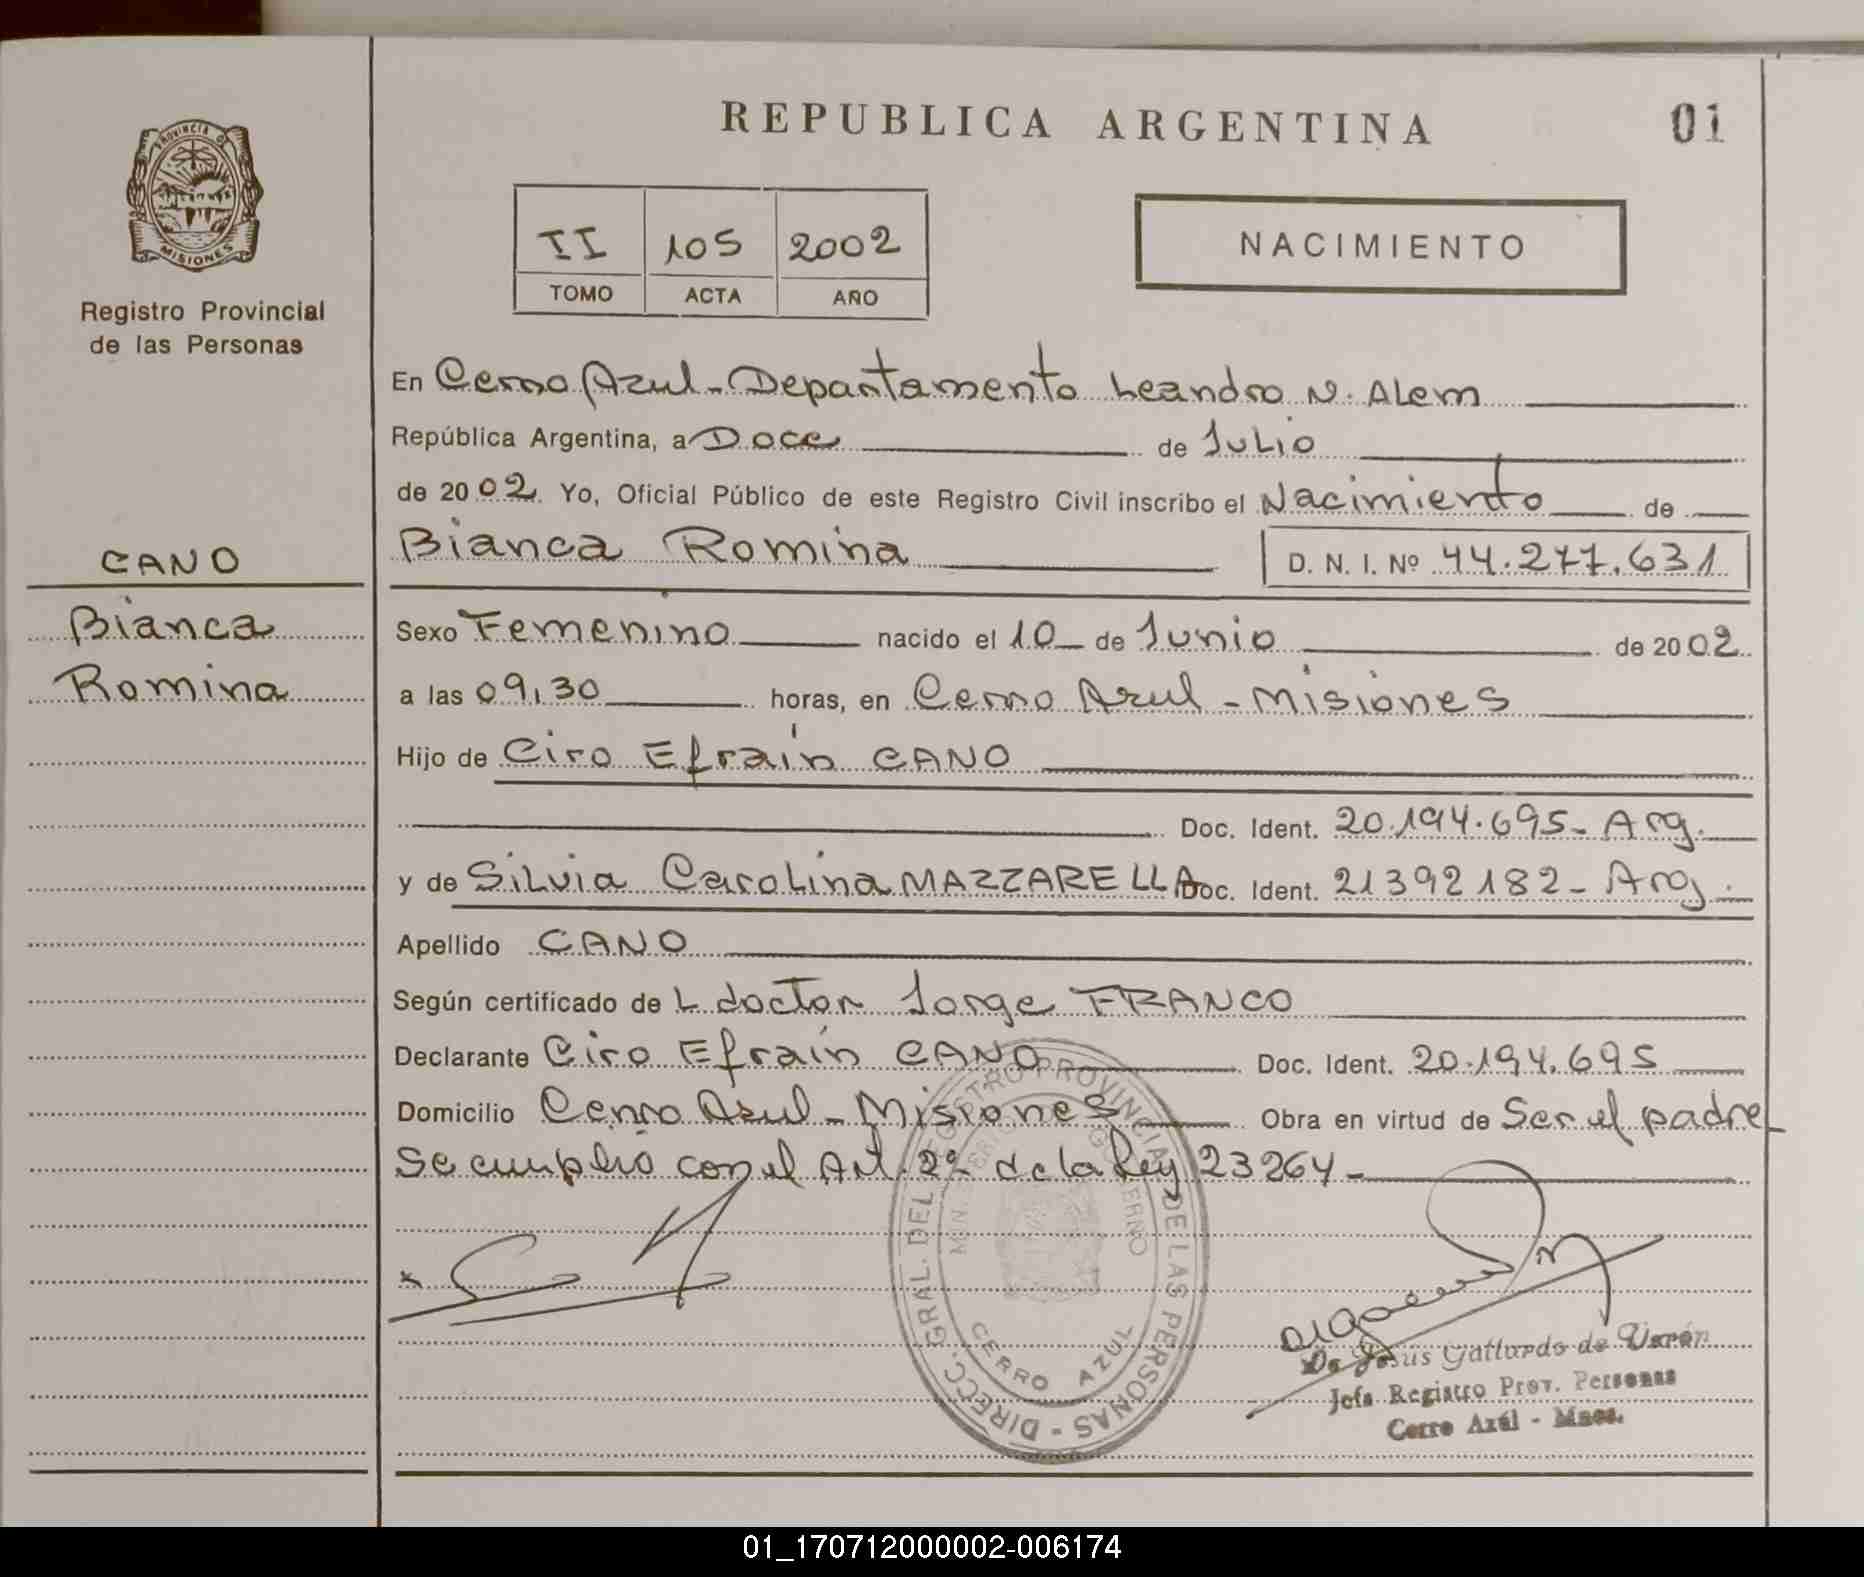 REPUBLICA ARGENTINA
01
PROVINCIA DE
MISIONES
Registro Provincial
de las Personas
II 105 2002
TOMO ACTA AÑO
NACIMIENTO
CANO
Bianca
Romina
En Cerro Azul - Departamento Leandro N. Alem
República Argentina, a Doce de Julio
de 2002. Yo, Oficial Público de este Registro Civil inscribo el Nacimiento de
Bianca Romina D. N. I. Nº 44.277.631
Sexo Femenino nacido el 10 de Junio de 2002
a las 09,30 horas, en Cerro Azul - Misiones
Hijo de Ciro Efraín CANO
Doc. Ident. 20.194.695- Arg.
y de Silvia Carolina MAZZARELLA Doc. Ident. 21392182- Arg.
Apellido CANO
Según certificado de L doctor Jorge FRANCO
Declarante Ciro Efraín CANO Doc. Ident. 20.194.695
Domicilio Cerro Azul - Misiones Obra en virtud de Ser el padre
Se cumplió con el Art. 2º de la Ley 23264-
DIRECC. GRAL. DEL REGISTRO PROVINCIAL DE LAS PERSONAS -
MINISTERIO GOBIERNO
CERRO AZUL
De Jesús Gallardo de Verón
Jefa Registro Prov. Personas
Cerro Azúl - Mnes.
01_170712000002-006174